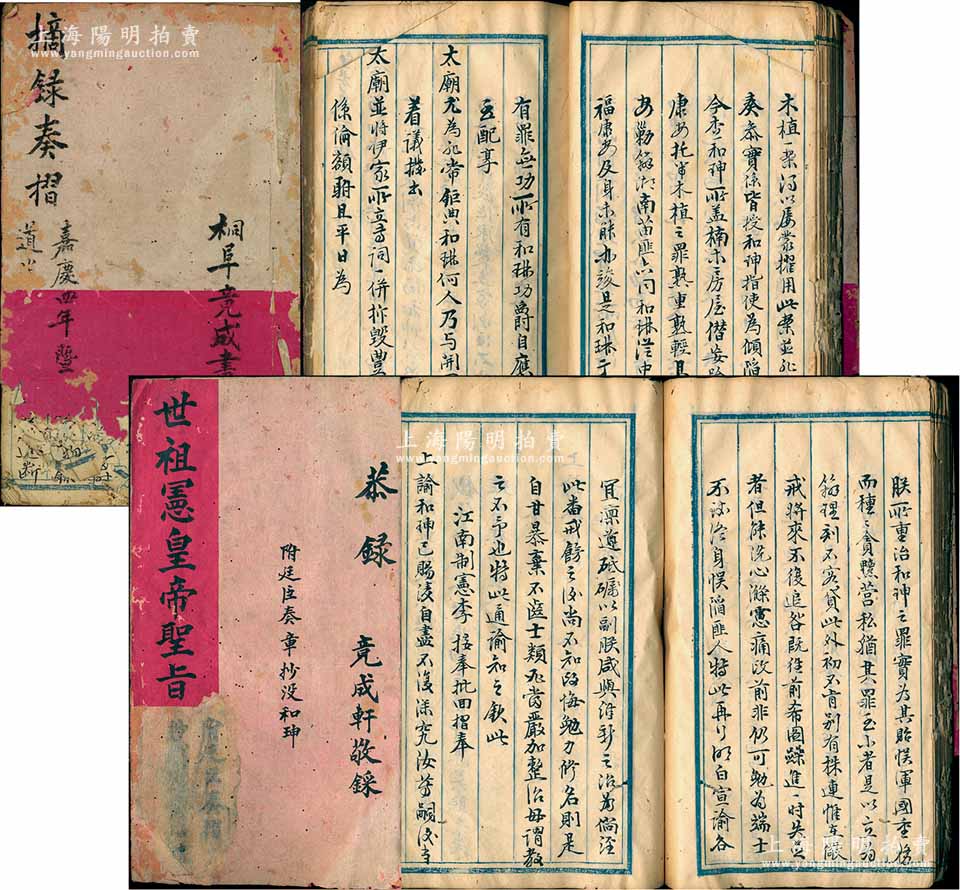 上海陽明拍賣
www.yangmingauction.com
摘録奏摺
嘉慶四年暨
道光
桐阜竟成書
木植一案得以屡蒙擢用此案並非
奏恭實係皆授和珅指使為傾陷
今查和珅所盖楠木房屋僭妄踰
康安托审木植之罪熟重熟輕其
安勦辦湖南苗匪亦同和琳從中
福康安及身未能亦竣是和琳于
有罪無功所有和琳功爵自應
至配享
太廟尤為非常鉅典和琳何人乃与開
着議撤出
太廟並將伊家所立專祠一併拆毀豐
係倫額駙且平日為
上海陽明拍賣
www.yangmingauction.com
世祖憲皇帝聖旨
恭録
竟成軒敬録
附廷臣奏章抄没和珅
朕所重治和珅之罪實為其貽悮軍國重務
而種種貪黷营私猶其罪之小者是以立即
辦理刻不容貸此外初不肯别有株連惟在儆
戒將來不復追咎既往前希圖躁進一时失足
者但能洗心滌慮痛改前非仍可勉為端士
不致终身悮陷匪人特此再行明白宣諭各
宜凛遵砥礪以副朕咸與維新之治若倘經
此番戒飭之後尚不知改悔勉力修名則是
自甘暴棄不齒士類尤當嚴加整治毋謂教
之不予也特此通諭知之欽此
江南制憲李接奉批回摺奉
上諭和珅已賜淺自盡不復深究汝等嗣後
上海陽明拍賣
www.yangmingauction.com